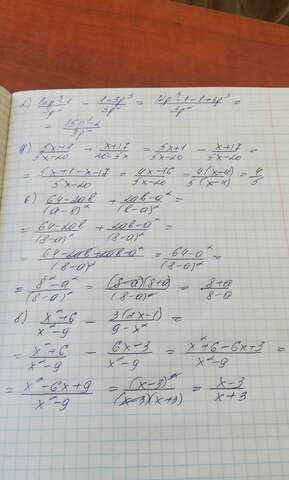 2) (12p²-1)/(3p²) - (1-3p²)/(3p²) = (12p²-1-1+3p²)/(3p²) =
= (15p²-2)/(3p²)
(5x+1)/(5x-20) + (x+17)/(20-5x) = (5x+1)/(5x-20) - (x+17)/(5x-20) =
= (5x+1-x-17)/(5x-20) = (4x-16)/(5x-20) = (4(x-4))/(5(x-4)) = 4/5
6) (64-2ab)/(a-8)² + (2ab-a²)/(8-a)² =
= (64-2ab)/(8-a)² + (2ab-a²)/(8-a)² =
= (64-2ab+2ab-a²)/(8-a)² = (64-a²)/(8-a)² =
= (8²-a²)/(8-a)² = ((8-a)(8+a))/(8-a)² = (8+a)/(8-a)
8) (x²+6)/(x²-9) - (3(2x-1))/(9-x²) =
= (x²+6)/(x²-9) - (6x-3)/(x²-9) = (x²+6-6x+3)/(x²-9) =
= (x²-6x+9)/(x²-9) = (x-3)²/((x-3)(x+3)) = (x-3)/(x+3)